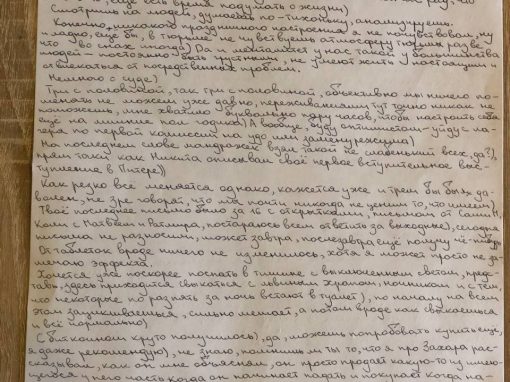 есть время подумать о жизни)
Смотришь людей, думаешь по-тихоньку, анализируешь.
Конечно никакого праздничного настроения я не почувствовал, ну
и ладно, ещё бы, в тюрьме не чувствуешь атмосферу
что во снах иногда) Да и менталитет у нас такой, большинства
людей – постоянно быть грустными, не умеют жить настоящим и
отвлекаться от посредственных проблем.
Немного о суде)
Три с половиной, так три с половиной, объективно мы ничего по-
менять не можем уже давно, переживаниями тут точно никак не
поможешь, мне хватило буквально пару часов, чтобы настроить себя
ещё на лишние пол-года) А вообще, буду оптимистом – уйду с ла-
геря по первой комиссии на удо или замену режима)
На последнем слове мандраж взял такой не слабенький всех, да?),
прям таки как Никита описывал своё первое вступительное выс-
тупление в Питере))
Как резко все меняется однако, кажется уже и трём бы был до-
волен, не зря говорят, что мы почти никогда не ценим то, что имеем)
Твоё последнее письмо было за 16 с открытками, письмом от Саши Н,
Кати с Матвеем и Ратмира, постараюсь всем ответить за выходные), сегодня
письма не разносили, может завтра, послезавтра ещё получу что-нибудь
От таблеток вроде ничего не изменилось, хотя я может просто не за-
мечаю эффекта.
Хочется уже поскорее поспать в тишине с выключенным светом, пред-
ставь, здесь приходится свыкаться с львиным храпом, ночником и с тем,
что некоторые по разу за ночь встают в туалет), по началу на всем
этом зацикливаешься, сильно мешает, а потом вроде как свыкаешься
и всё нормально)
С биткоином круто получилось), да, можешь попробовать купить ещё,
я даже рекомендую), не знаю, помнишь ли ты то, что я про Захара рас-
сказывал, как он мне объяснял, он просто продаёт какую-то из имею-
щейся у него часть когда он начинает падать и покупает когда на-